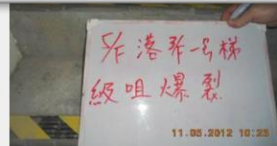 5/F 落 3/F 一号梯
級咀爆裂
11.05.2012 10:23